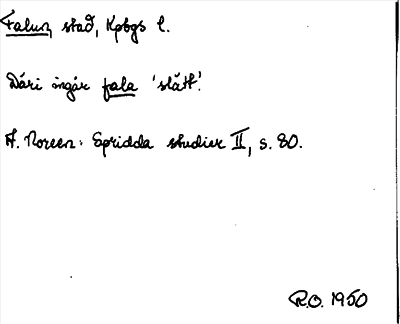 Falun, stad, Kpbgs l.
Däri ingår fala 'slätt'.
A. Noreen: Spridda studier II, s. 80.
R.O. 1950